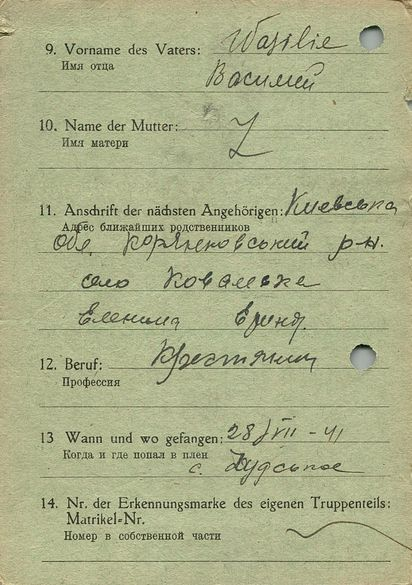 9. Vorname des Vaters: Wasilie
Имя отца
Василий
10. Name der Mutter: Z
Имя матери
11. Anschrift der nächsten Angehörigen: Киевська
Адрес ближайших родственников
обл. р-н.
село
12. Beruf: Крестянин
Профессия
13 Wann und wo gefangen: 28/VII - 41
Когда и где попал в плен
с.
14. Nr. der Erkennungsmarke des eigenen Truppenteils:
Matrikel-Nr.
Номер в собственной части